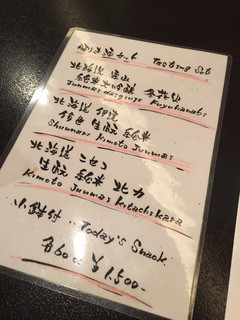 利き酒セット Tasting Set
北海道 栗山
純米大吟醸 冬花火
Junmaidaiginjo Fuyuhanabi
北海道
生酛 純米
Shunnen Kimoto Junmai
北海道 ニセコ
生酛 純米 北力
Kimoto Junmai Kitachikara
小鉢付 Today's Snack
各60cc ¥1,500-